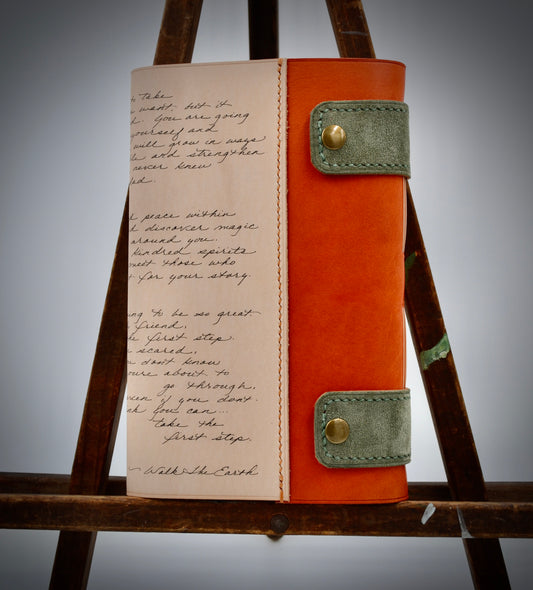 to take
want. but it
You are going
yourself and
will grow in ways
and strengthen
never knew
peace within
d discover magic
around you.
kindred spirits
meet those who
for your story.
ng to be so great
friend,
first step.
scared,
don't know
you're about to
go through,
even if you don't
you can...
take the
first step.
~ Walk the Earth